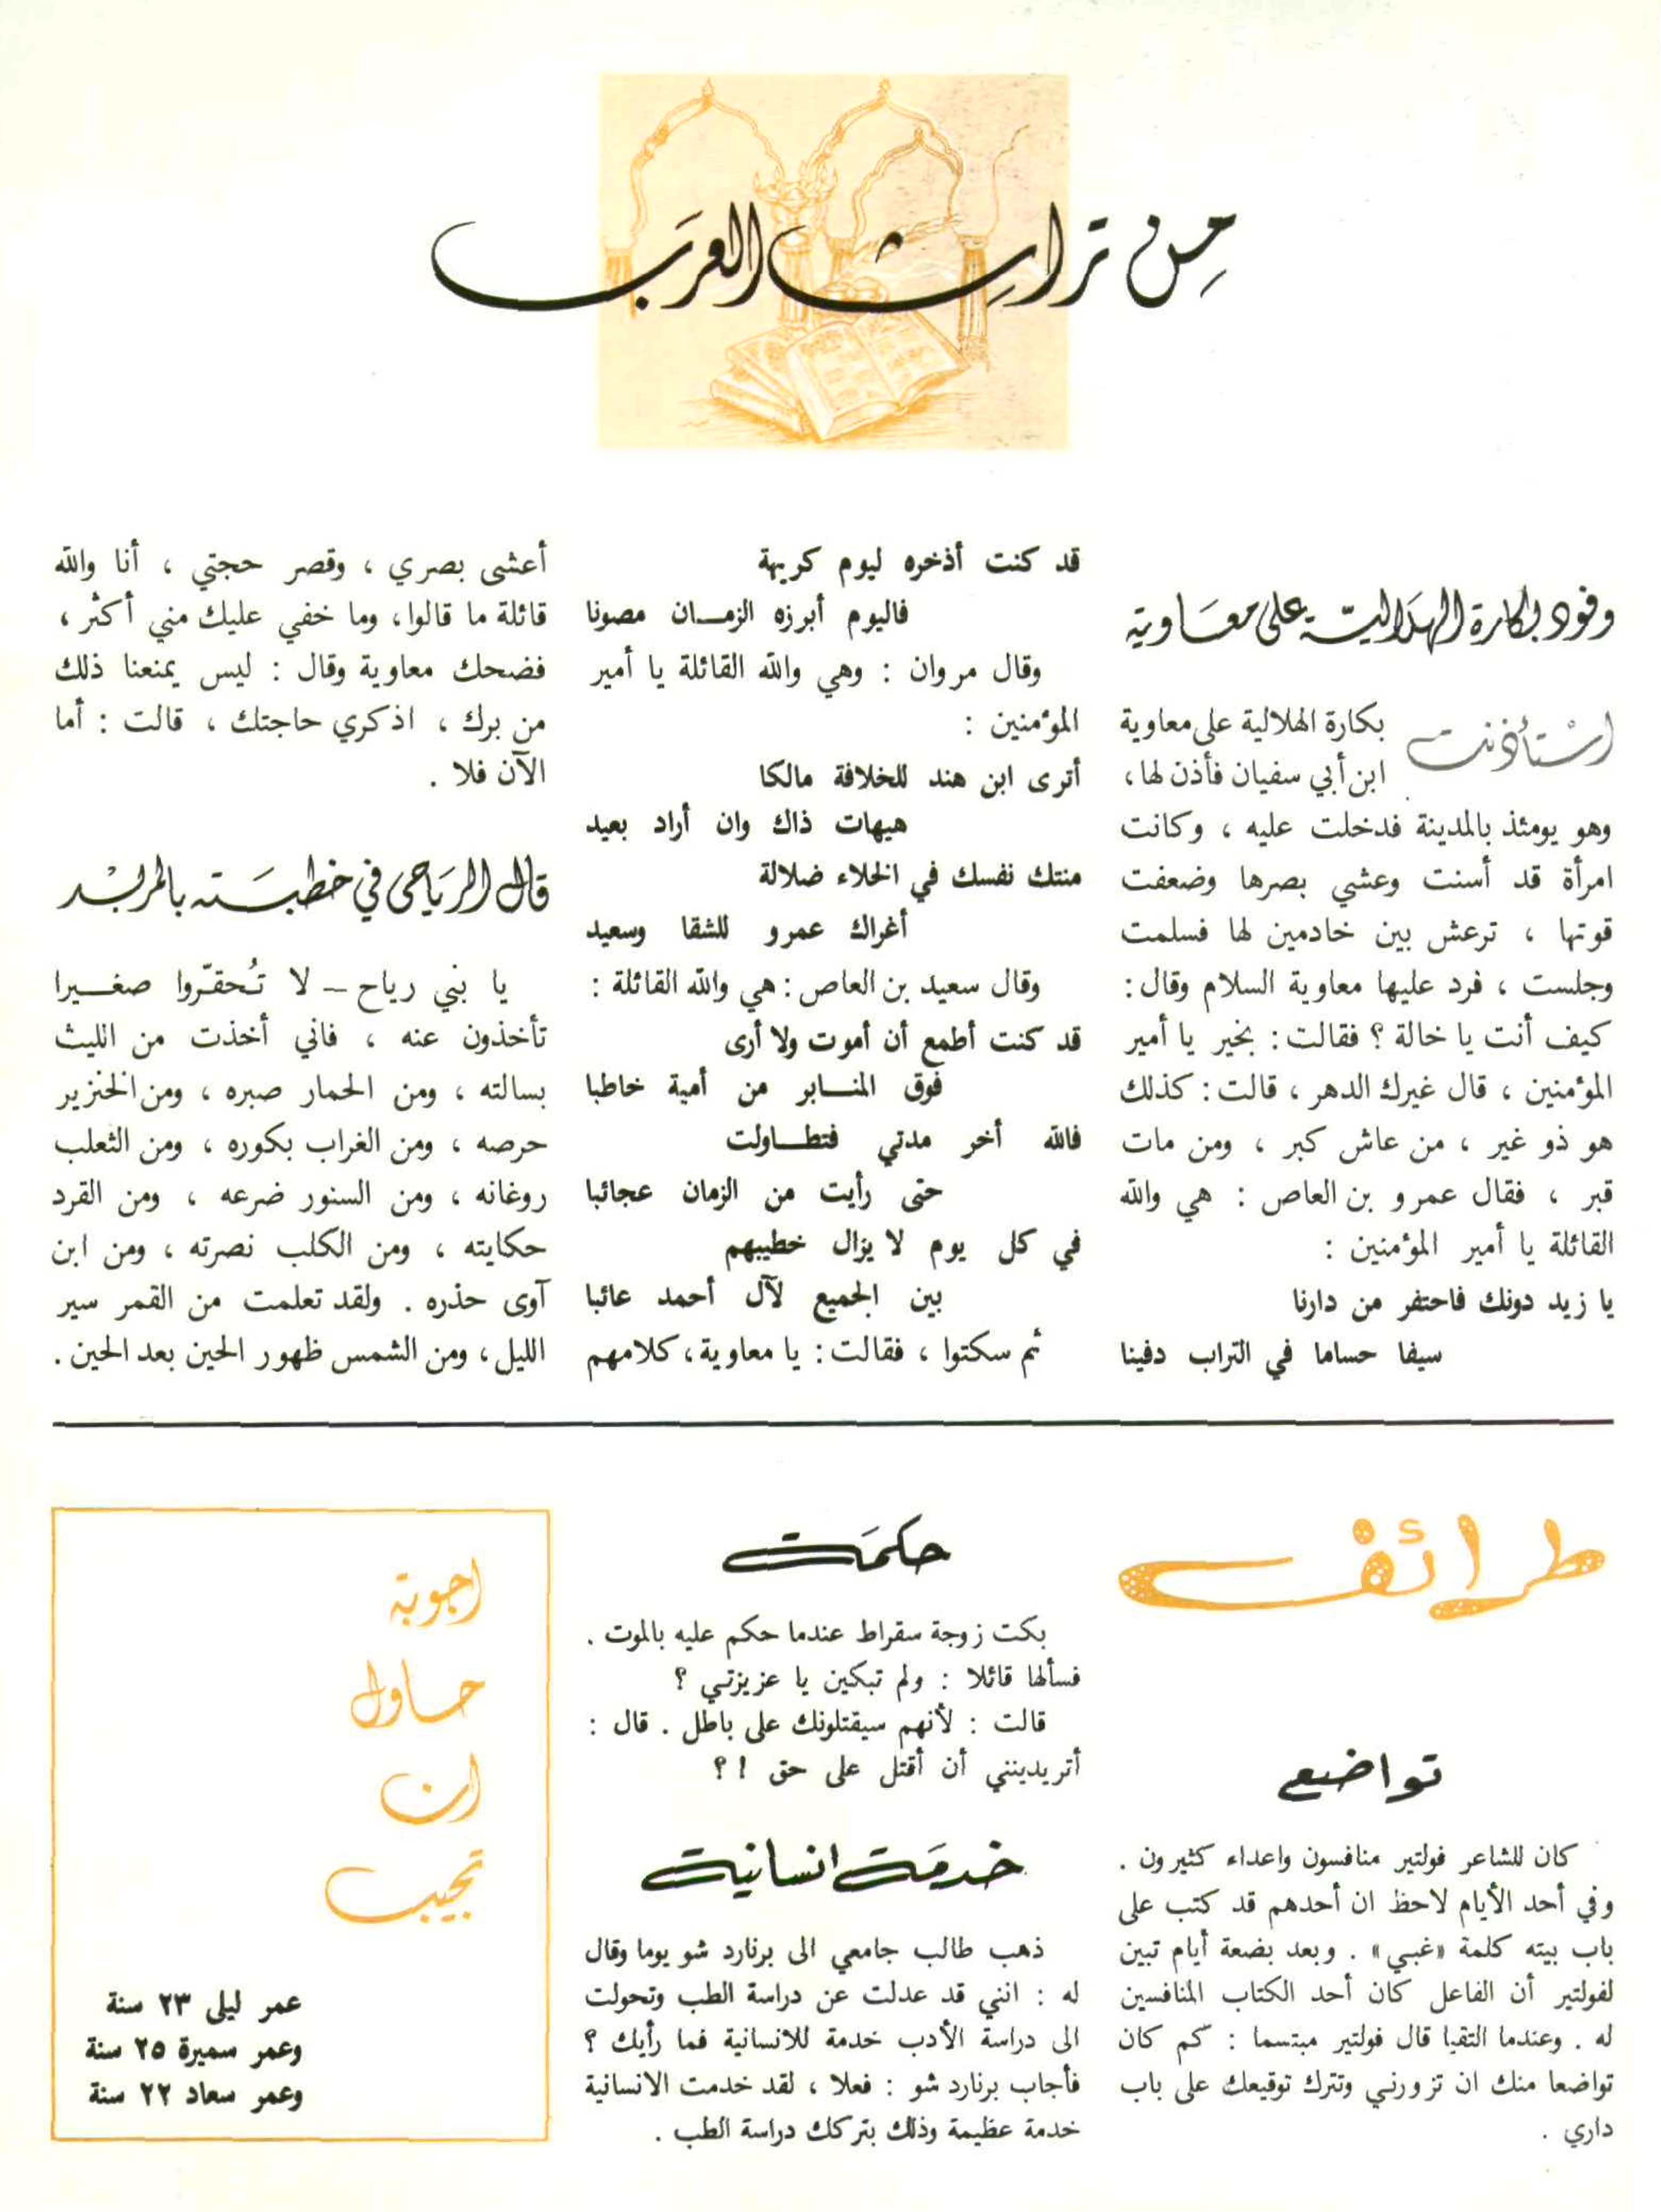 مِن تراثِ العرَب
وفود بكارة الهلاليّة على معاوية
استأذنت
بكارة الهلالية على معاوية
ابن أبي سفيان فأذن لها ،
وهو يومئذ بالمدينة فدخلت عليه ، وكانت
امرأة قد أسنت وعشي بصرها وضعفت
قوتها ، ترعش بين خادمين لها فسلمت
وجلست ، فرد عليها معاوية السلام وقال :
كيف أنت يا خالة ؟ فقالت : بخير يا أمير
المؤمنين ، قال غيرك الدهر ، قالت : كذلك
هو ذو غير ، من عاش كبر ، ومن مات
قبر ، فقال عمرو بن العاص : هي والله
القائلة يا أمير المؤمنين :
يا زيد دونك فاحتفر من دارنا
سيفا حساما في التراب دفينا
قد كنت أذخره ليوم كريهة
فاليوم أبرزه الزمـــان مصونا
وقال مروان : وهي والله القائلة يا أمير
المؤمنين :
أترى ابن هند للخلافة مالكا
هيهات ذاك وان أراد بعيد
منتك نفسك في الخلاء ضلالة
أغراك عمرو للشقا وسعيد
وقال سعيد بن العاص : هي والله القائلة :
قد كنت أطمع أن أموت ولا أرى
فوق المنـــابر من أمية خاطبا
فالله أخر مدتي فتطـــاولت
حتى رأيت من الزمان عجائبا
في كل يوم لا يزال خطيبهم
بين الجميع لآل أحمد عائبا
ثم سكتوا ، فقالت : يا معاوية ، كلامهم
أعشى بصري ، وقصر حجتي ، أنا والله
قائلة ما قالوا ، وما خفي عليك مني أكثر ،
فضحك معاوية وقال : ليس يمنعنا ذلك
من برك ، اذكري حاجتك ، قالت : أما
الآن فلا .
قال الرياحي في خطبته بالمربد
يا بني رياح – لا تُحقّروا صغـــيرا
تأخذون عنه ، فاني أخذت من الليث
بسالته ، ومن الحمار صبره ، ومن الخنزير
حرصه ، ومن الغراب بكوره ، ومن الثعلب
روغانه ، ومن السنور ضرعه ، ومن القرد
حكايته ، ومن الكلب نصرته ، ومن ابن
آوى حذره . ولقد تعلمت من القمر سير
الليل ، ومن الشمس ظهور الحين بعد الحين .
طرائف
تواضع
كان للشاعر فولتير منافسون واعداء كثيرون .
وفي أحد الأيام لاحظ ان أحدهم قد كتب على
باب بيته كلمة «غبي» . وبعد بضعة أيام تبين
لفولتير أن الفاعل كان أحد الكتاب المنافسين
له . وعندما التقيا قال فولتير مبتسما : كم كان
تواضعا منك ان تزورني وتترك توقيعك على باب
داري .
حكمة
بكت زوجة سقراط عندما حكم عليه بالموت .
فسألها قائلا : ولم تبكين يا عزيزتي ؟
قالت : لأنهم سيقتلونك على باطل . قال :
أتريدينني أن أقتل على حق ! ؟
خدمة انسانية
ذهب طالب جامعي الى برنارد شو يوما وقال
له : انني قد عدلت عن دراسة الطب وتحولت
الى دراسة الأدب خدمة للانسانية فما رأيك ؟
فأجاب برنارد شو : فعلا ، لقد خدمت الانسانية
خدمة عظيمة وذلك بتركك دراسة الطب .
اجوبة
حاول
ان
تجيب
عمر ليلى ٢٣ سنة
وعمر سميرة ٢٥ سنة
وعمر سعاد ٢٢ سنة